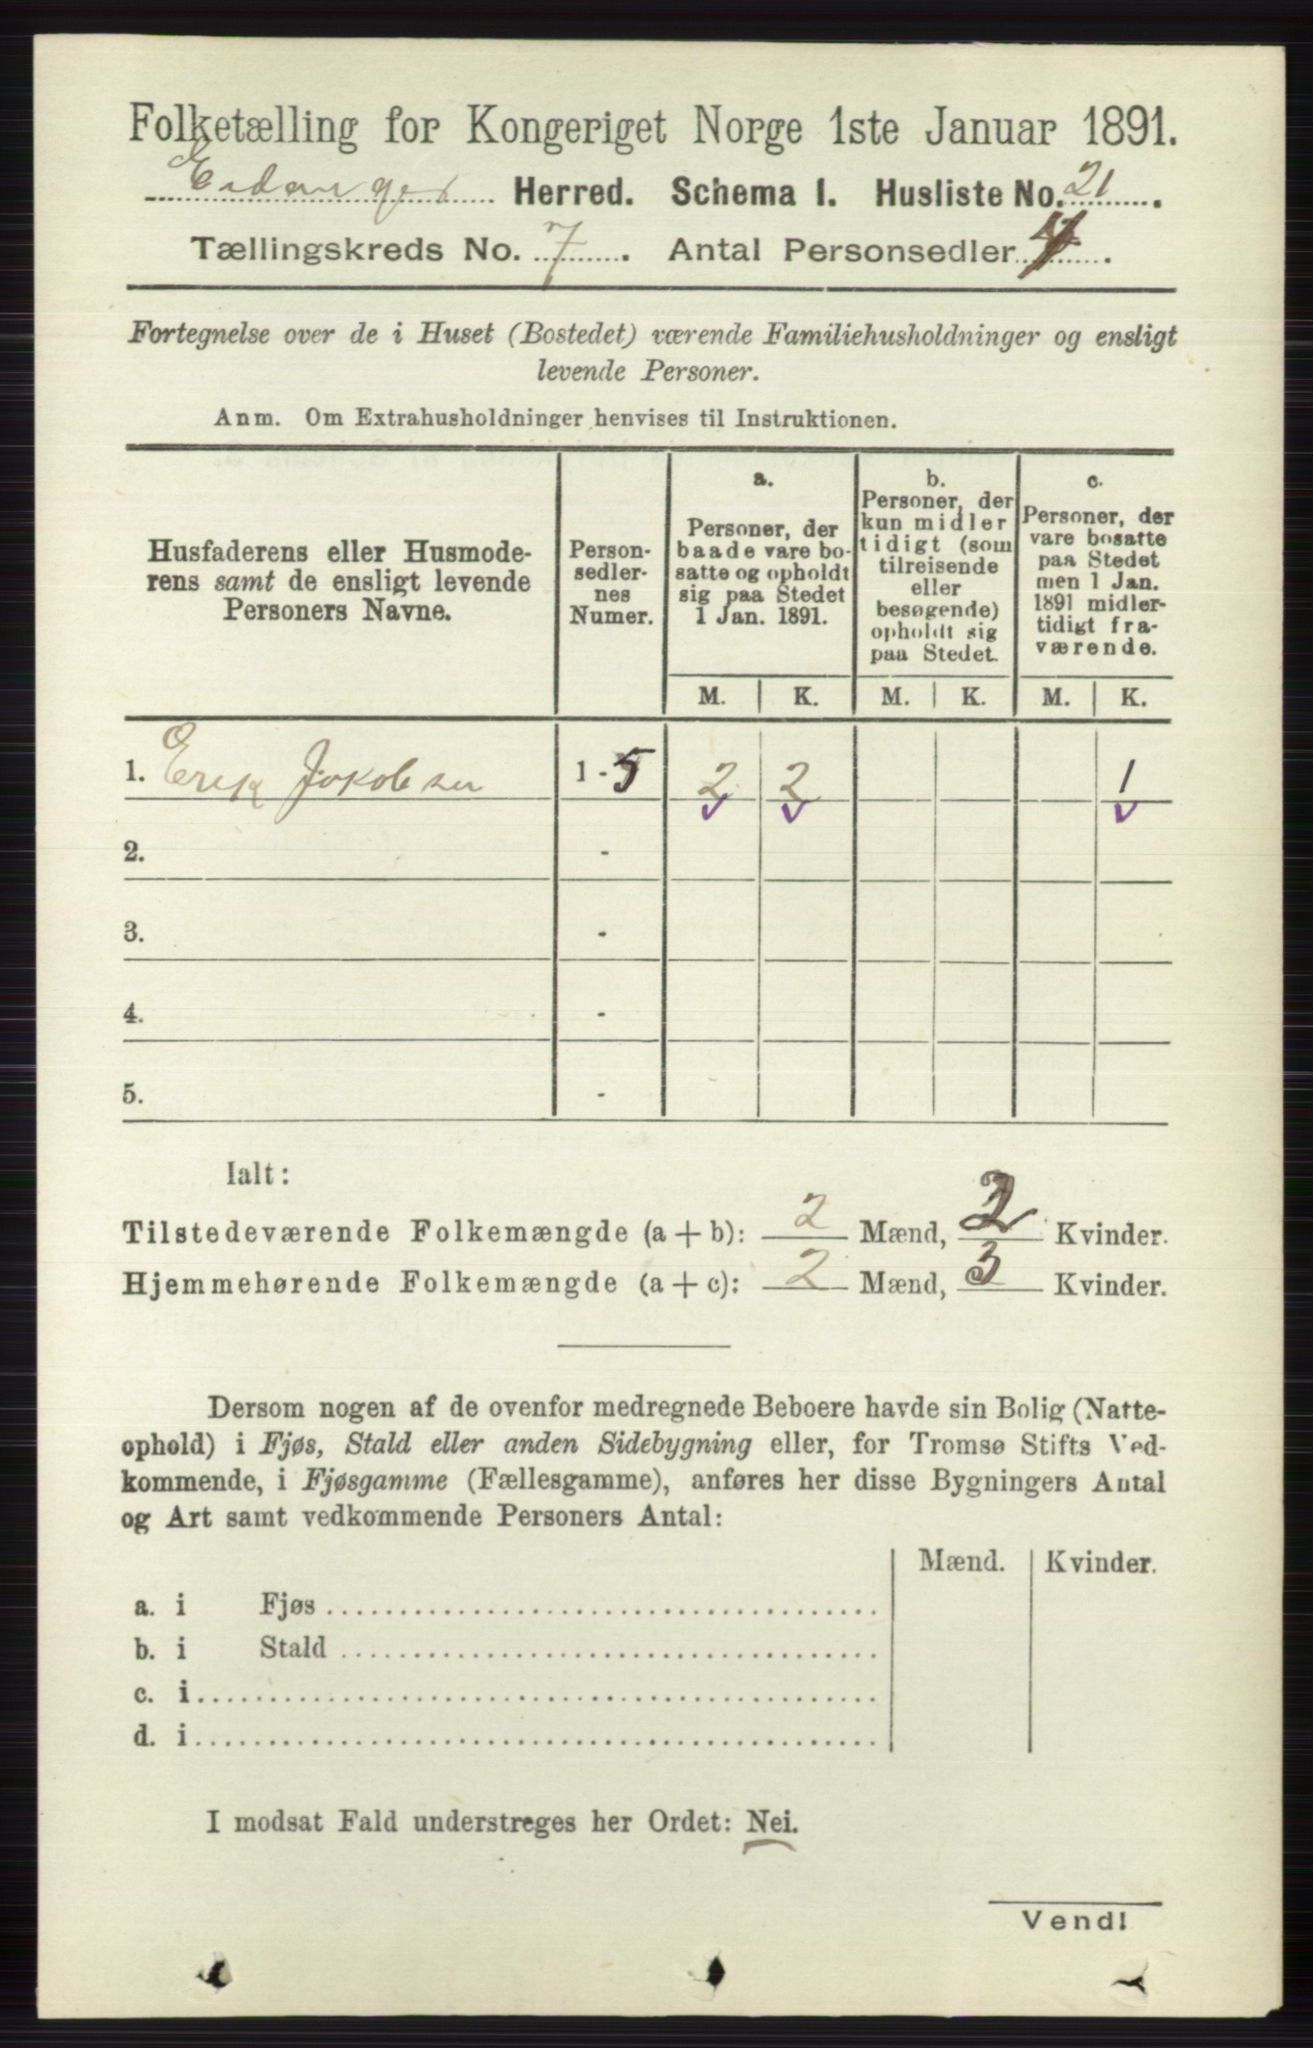 Folketælling for Kongeriget Norge 1ste Januar 1891.
Eidanger Herred. Schema I. Husliste No. 21.
Tællingskreds No. 7. Antal Personsedler
Fortegnelse over de i Huset (Bostedet) værende Familiehusholdninger og ensligt
levende Personer.
Anm. Om Extrahusholdninger henvises til Instruktionen.
Husfaderens eller Husmode-
rens samt de ensligt levende
Personers Navne.
Person-
sedler-
nes
Numer.
a.
Personer, der
baade vare bo-
satte og opholdt
sig paa Stedet
1 Jan. 1891.
b.
Personer, der
kun midler
tidigt (som
tilreisende
eller
besøgende)
opholdt sig
paa Stedet.
c.
Personer, der
vare bosatte
paa Stedet
men 1 Jan.
1891 midler-
tidigt fra-
værende.
M. K. M. K. M. K.
1. Erik Jakobsen 1-5 2 2 1
2. -
3. -
4. -
5. -
Ialt:
Tilstedeværende Folkemængde (a + b): 2 Mænd, 2 Kvinder.
Hjemmehørende Folkemængde (a + c): 2 Mænd, 3 Kvinder.
Dersom nogen af de ovenfor medregnede Beboere havde sin Bolig (Natte-
ophold) i Fjøs, Stald eller anden Sidebygning eller, for Tromsø Stifts Ved-
kommende, i Fjøsgamme (Fællesgamme), anføres her disse Bygningers Antal
og Art samt vedkommende Personers Antal:
Mænd. Kvinder.
a. i Fjøs
b. i Stald
c. i
d. i
I modsat Fald understreges her Ordet: Nei.
Vend!